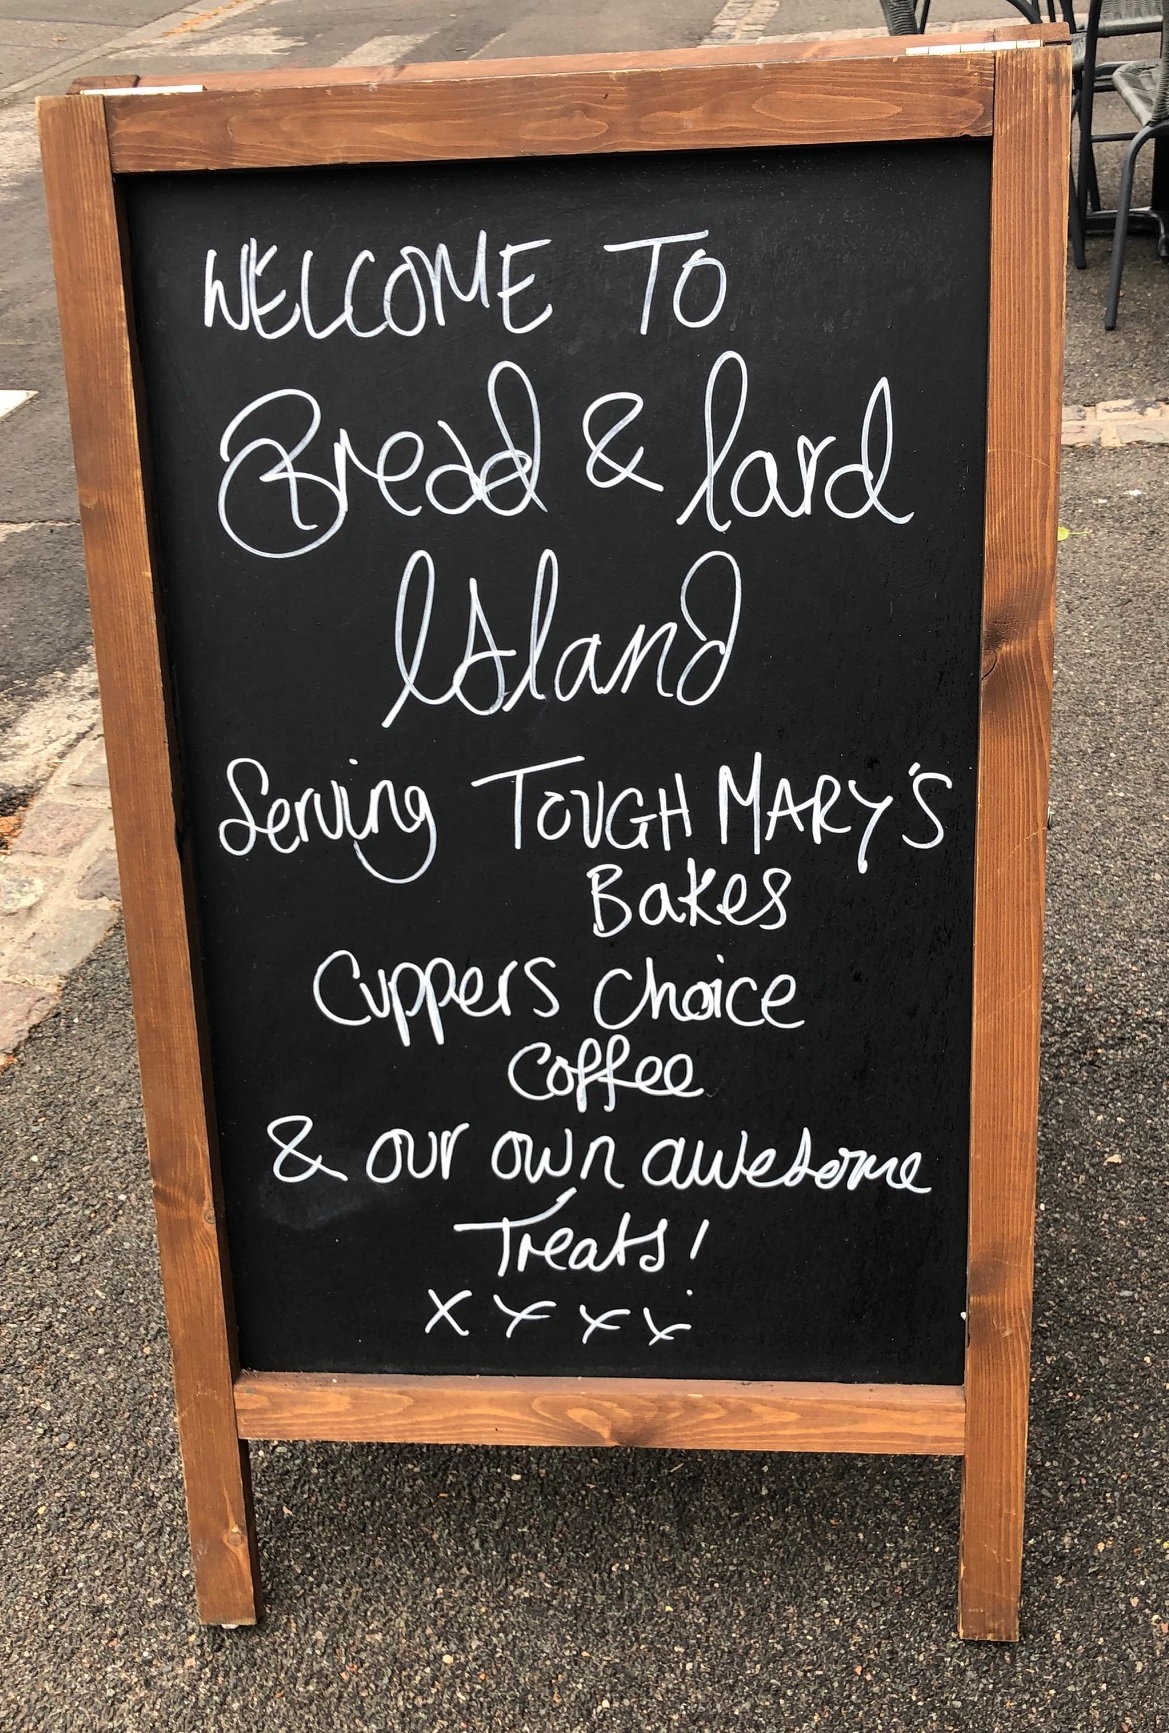 WELCOME TO
Bread & lard
Island
Serving TOUGH MARY'S
Bakes
Cuppers Choice
Coffee
& our own awesome
Treats!
x x x x